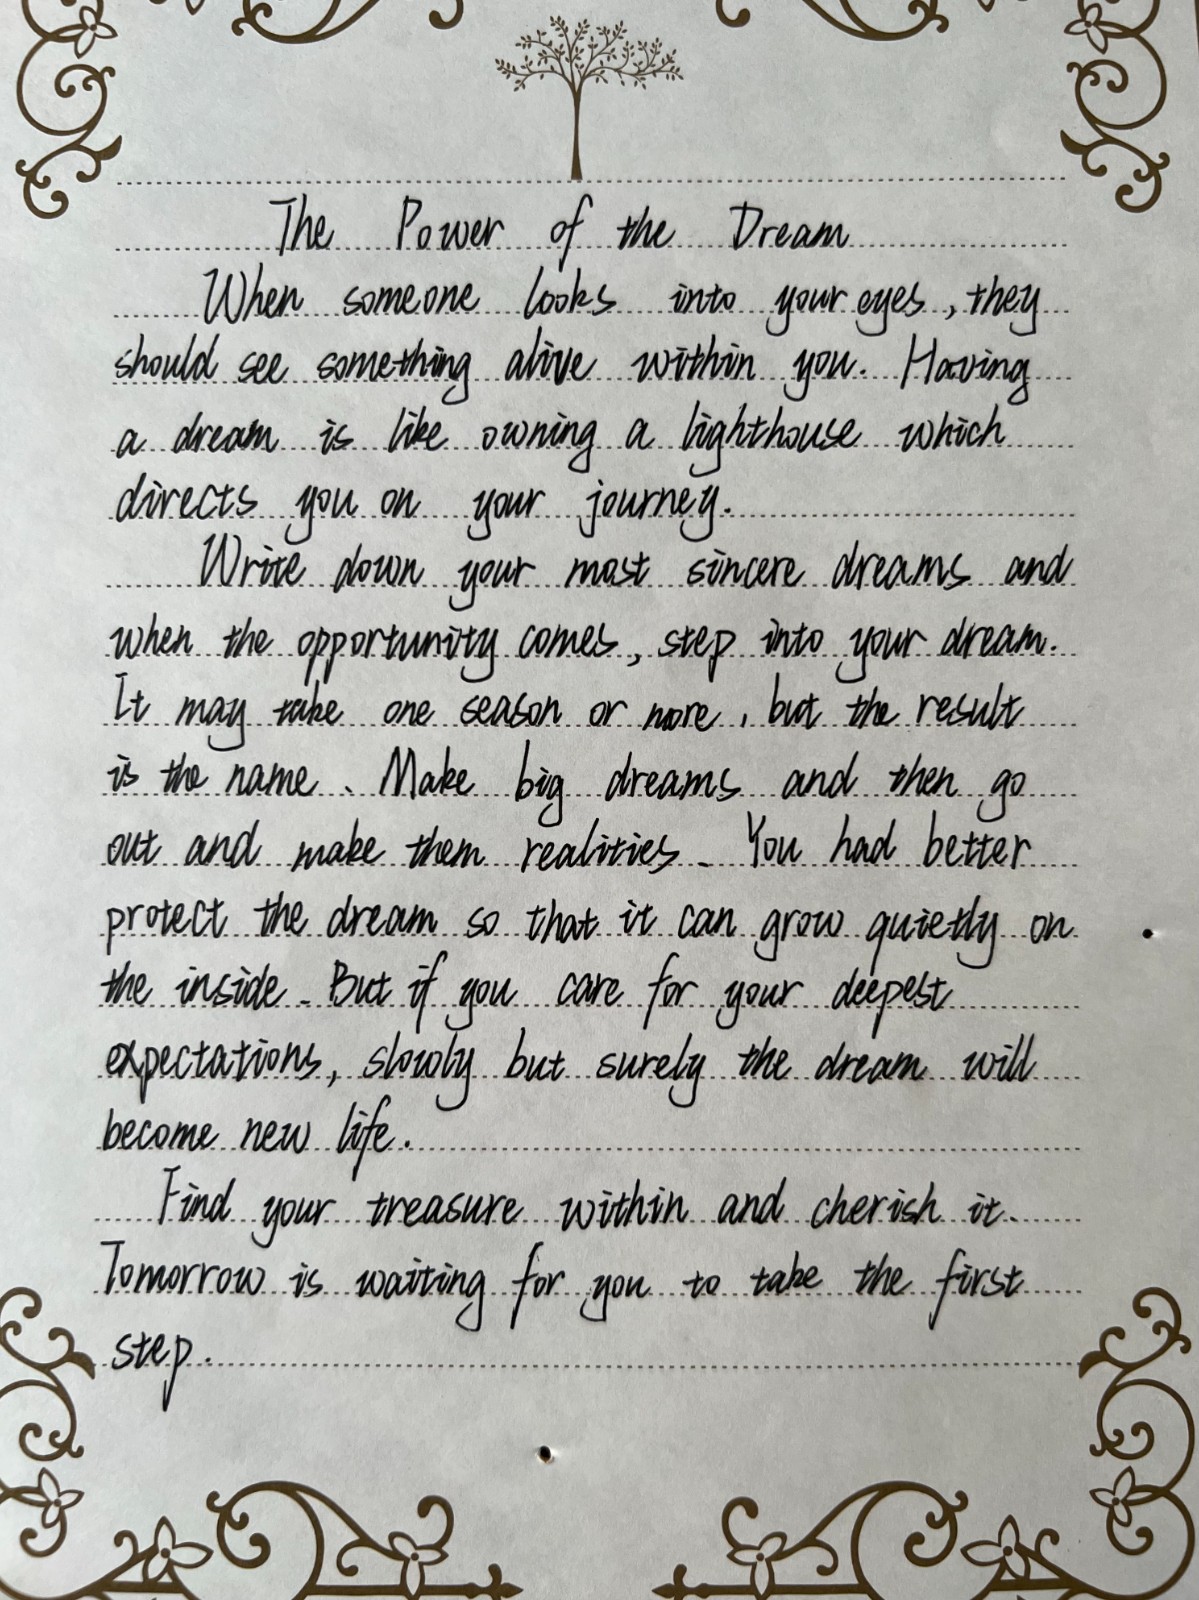 The Power of the Dream
When someone looks into your eyes, they
should see something alive within you. Having
a dream is like owning a lighthouse which
directs you on your journey.
Write down your most sincere dreams and
when the opportunity comes, step into your dream.
It may take one season or more, but the result
is the name. Make big dreams and then go
out and make them realities. You had better
protect the dream so that it can grow quietly on
the inside. But if you care for your deepest
expectations, slowly but surely the dream will
become new life.
Find your treasure within and cherish it.
Tomorrow is waiting for you to take the first
step.